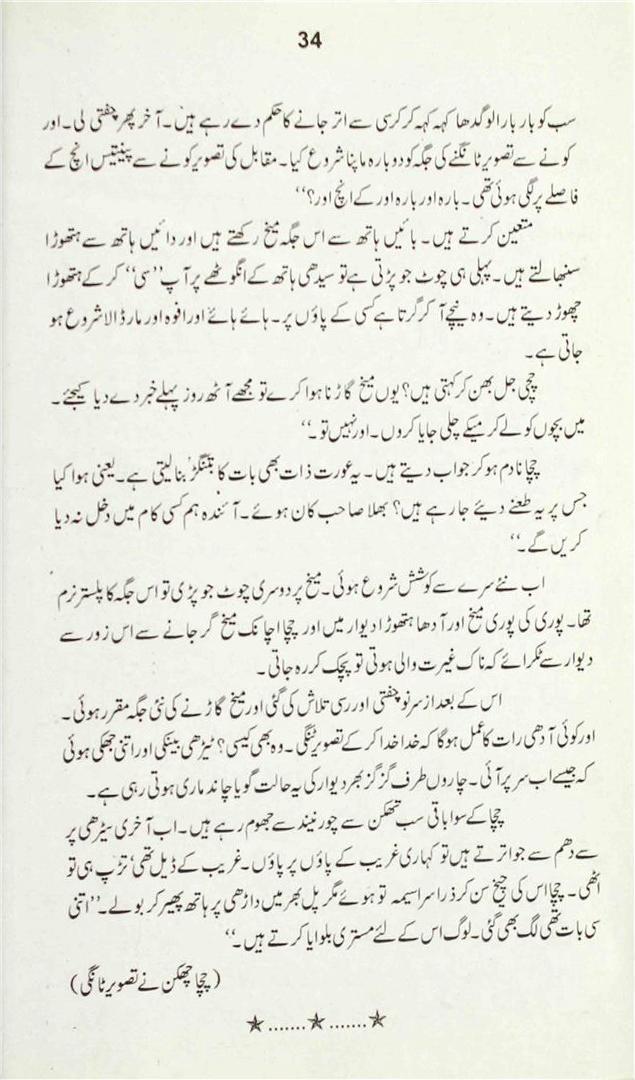 34
سب کو بار بار الو گدھا کہہ کہہ کر کرسی سے اتر جانے کا حکم دے رہے ہیں۔ آخر پھر چفتی لی۔ اور
کونے سے تصویر ٹانگنے کی جگہ کو دوبارہ ماپنا شروع کیا۔ مقابل کی تصویر کونے سے پینتیس انچ کے
فاصلے پر لگی ہوئی تھی۔ بارہ اور بارہ اور کے انچ اور؟‘‘
متعین کرتے ہیں۔ بائیں ہاتھ سے اس جگہ میخ رکھتے ہیں اور دائیں ہاتھ سے ہتھوڑا
سنبھالتے ہیں۔ پہلی ہی چوٹ جو پڑتی ہے تو سیدھی ہاتھ کے انگوٹھے پر آپ ’’سی‘‘ کر کے ہتھوڑا
چھوڑ دیتے ہیں۔ وہ نیچے آ کر گرتا ہے کسی کے پاؤں پر۔ ہائے ہائے اور افوہ اور مار ڈالا شروع ہو
جاتی ہے۔
چچی جل بھن کر کہتی ہیں؟ یوں میخ گاڑنا ہوا کرے تو مجھے آٹھ روز پہلے خبر دے دیا کیجئے۔
میں بچوں کو لے کر میکے چلی جایا کروں۔ اور نہیں تو۔‘‘
چچا نادم ہو کر جواب دیتے ہیں۔ یہ عورت ذات بھی بات کا بتنگڑ بنا لیتی ہے۔ یعنی ہوا کیا
جس پر یہ طعنے دیئے جا رہے ہیں؟ بھلا صاحب کان ہوئے۔ آئندہ ہم کسی کام میں دخل نہ دیا
کریں گے۔‘‘
اب نئے سرے سے کوشش شروع ہوئی۔ میخ پر دوسری چوٹ جو پڑی تو اس جگہ کا پلستر نرم
تھا۔ پوری کی پوری میخ اور آدھا ہتھوڑا دیوار میں اور چچا اچانک میخ گر جانے سے اس زور سے
دیوار سے ٹکرائے کہ ناک غیرت والی ہوتی تو پچک کر رہ جاتی۔
اس کے بعد از سر نو چفتی اور رسی تلاش کی گئی اور میخ گاڑنے کی نئی جگہ مقرر ہوئی۔
اور کوئی آدھی رات کا عمل ہوگا کہ خدا خدا کر کے تصویر ٹنگی۔ وہ بھی کیسی؟ ٹیڑھی بینگی اور اتنی جھکی ہوئی
کہ جیسے اب سر پر آئی۔ چاروں طرف گز گز بھر دیوار کی یہ حالت گویا چاند ماری ہوتی رہی ہے۔
چچا کے سوا باقی سب تھکن سے چور نیند سے جھوم رہے ہیں۔ اب آخری سیڑھی پر
سے دھم سے جو اترتے ہیں تو کہاری غریب کے پاؤں پر پاؤں۔ غریب کے ڈیل تھی‘ تڑپ ہی تو
اٹھی۔ چچا اس کی چیخ سن کر ذرا سراسیمہ تو ہوئے مگر پل بھر میں داڑھی پر ہاتھ پھیر کر بولے۔ ’’اتنی
سی بات تھی لگ بھی گئی۔ لوگ اس کے لئے مستری بلوایا کرتے ہیں۔‘‘
(چچا چھکن نے تصویر ٹانگی)
★.......★.......★